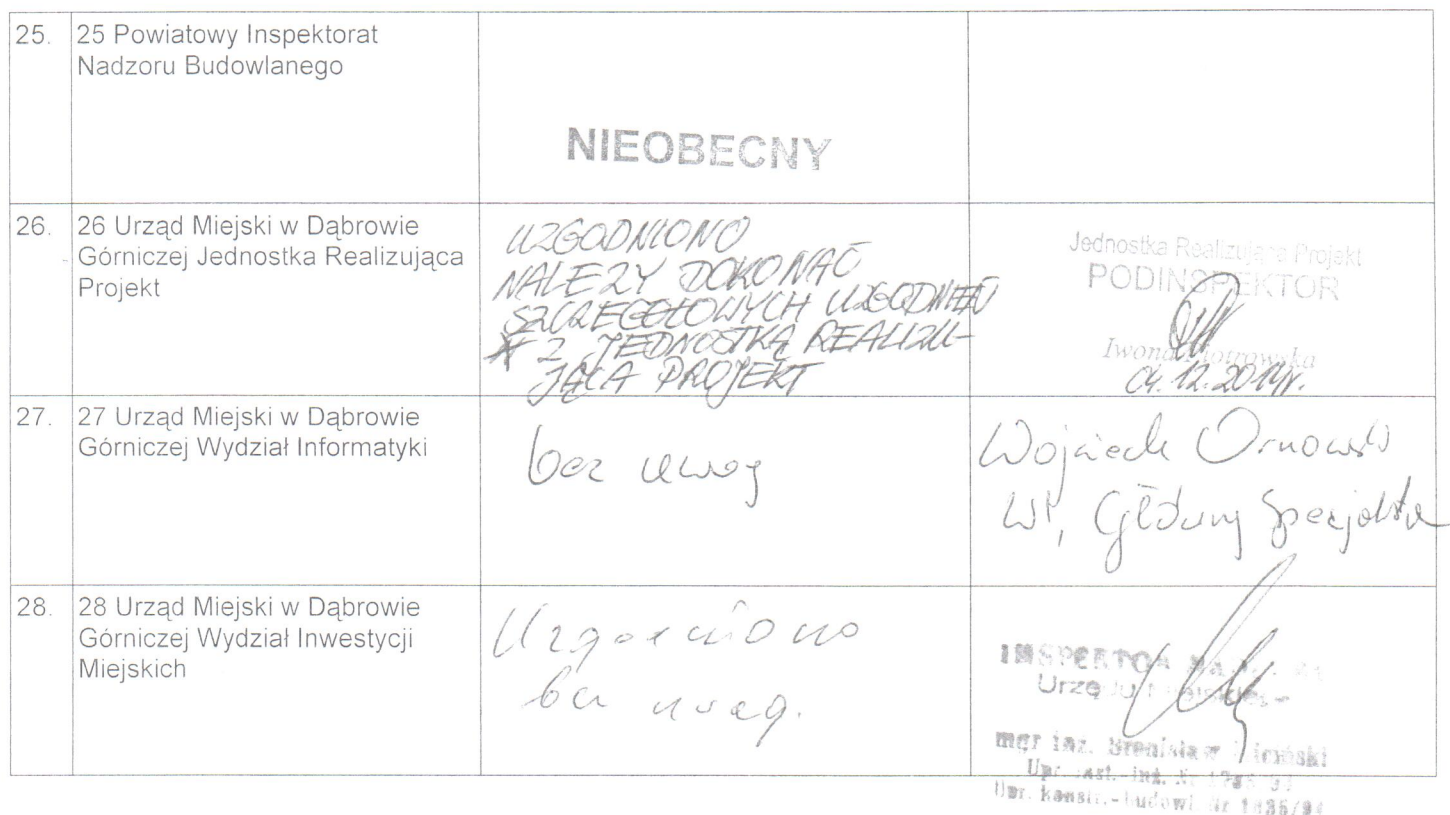 25. 25 Powiatowy Inspektorat
Nadzoru Budowlanego
NIEOBECNY
26. 26 Urząd Miejski w Dąbrowie
Górniczej Jednostka Realizująca
Projekt
UZGODNIONO
NALEŻY DOKONAĆ
SZCZEGÓŁOWYCH UZGODNIEŃ
Z JEDNOSTKĄ REALIZU-
JĄCĄ PROJEKT
Jednostka Realizująca Projekt
PODINSPEKTOR
Iwona Piotrowska
04.12.2014r.
27. 27 Urząd Miejski w Dąbrowie
Górniczej Wydział Informatyki
bez uwag
Wojciech Ornowski
WI, Główny Specjalista
28. 28 Urząd Miejski w Dąbrowie
Górniczej Wydział Inwestycji
Miejskich
Uzgodniono
bez uwag.
INSPEKTOR
Urzędu Miejskiego
mgr inż. Bronisław
Upr.
Upr. konstr.-budowl. Nr